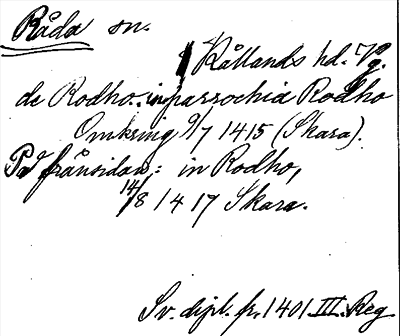 Råda sn.
Kållands hd. Vg.
de Rodho. in parrochia Rodho
Omkring 9/7 1415 (Skara).
På frånsidan: in Rodho,
14/8 1417 Skara.
Sv. dipl. fr. 1401 III. Reg